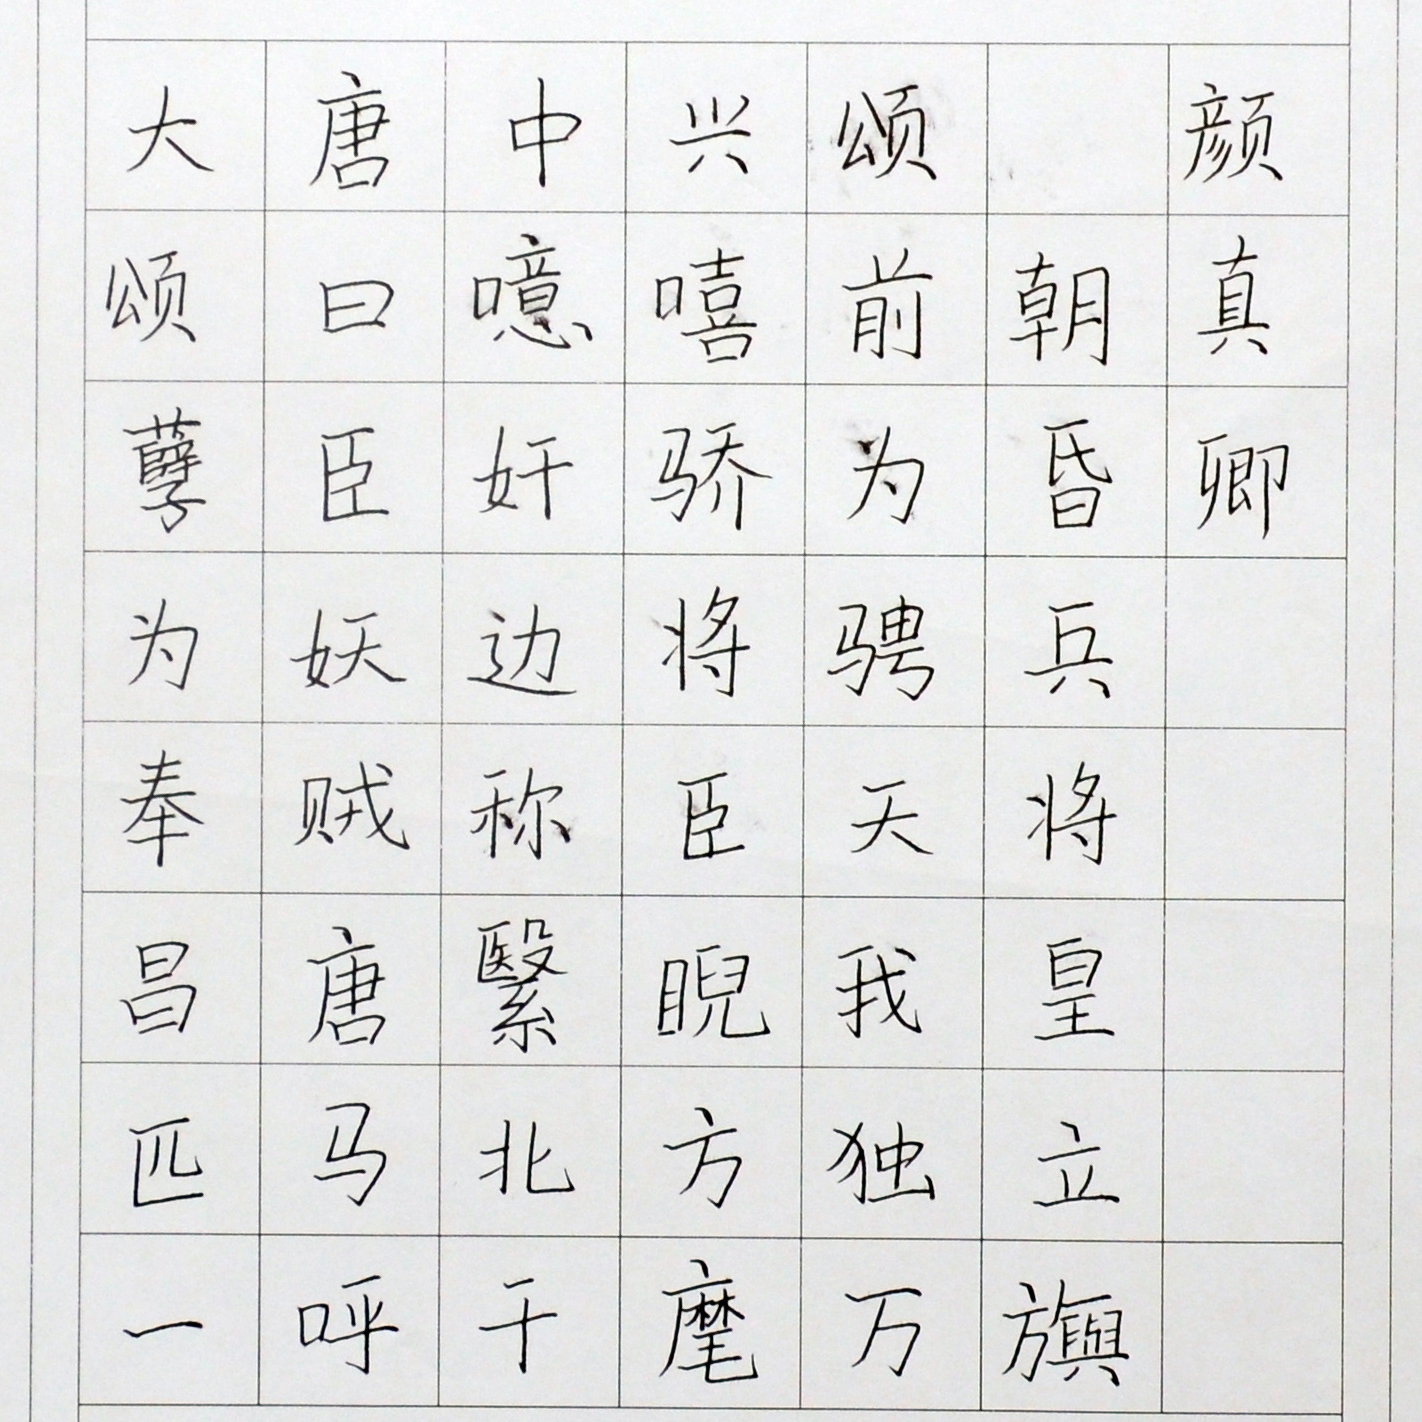 大唐中兴颂 颜真卿
颂曰噫嘻前朝
孽臣奸骄为昏
为妖边将骋兵
奉贼称臣天将
昌唐繄睨我皇
匹马北方独立
一呼千麾万旟